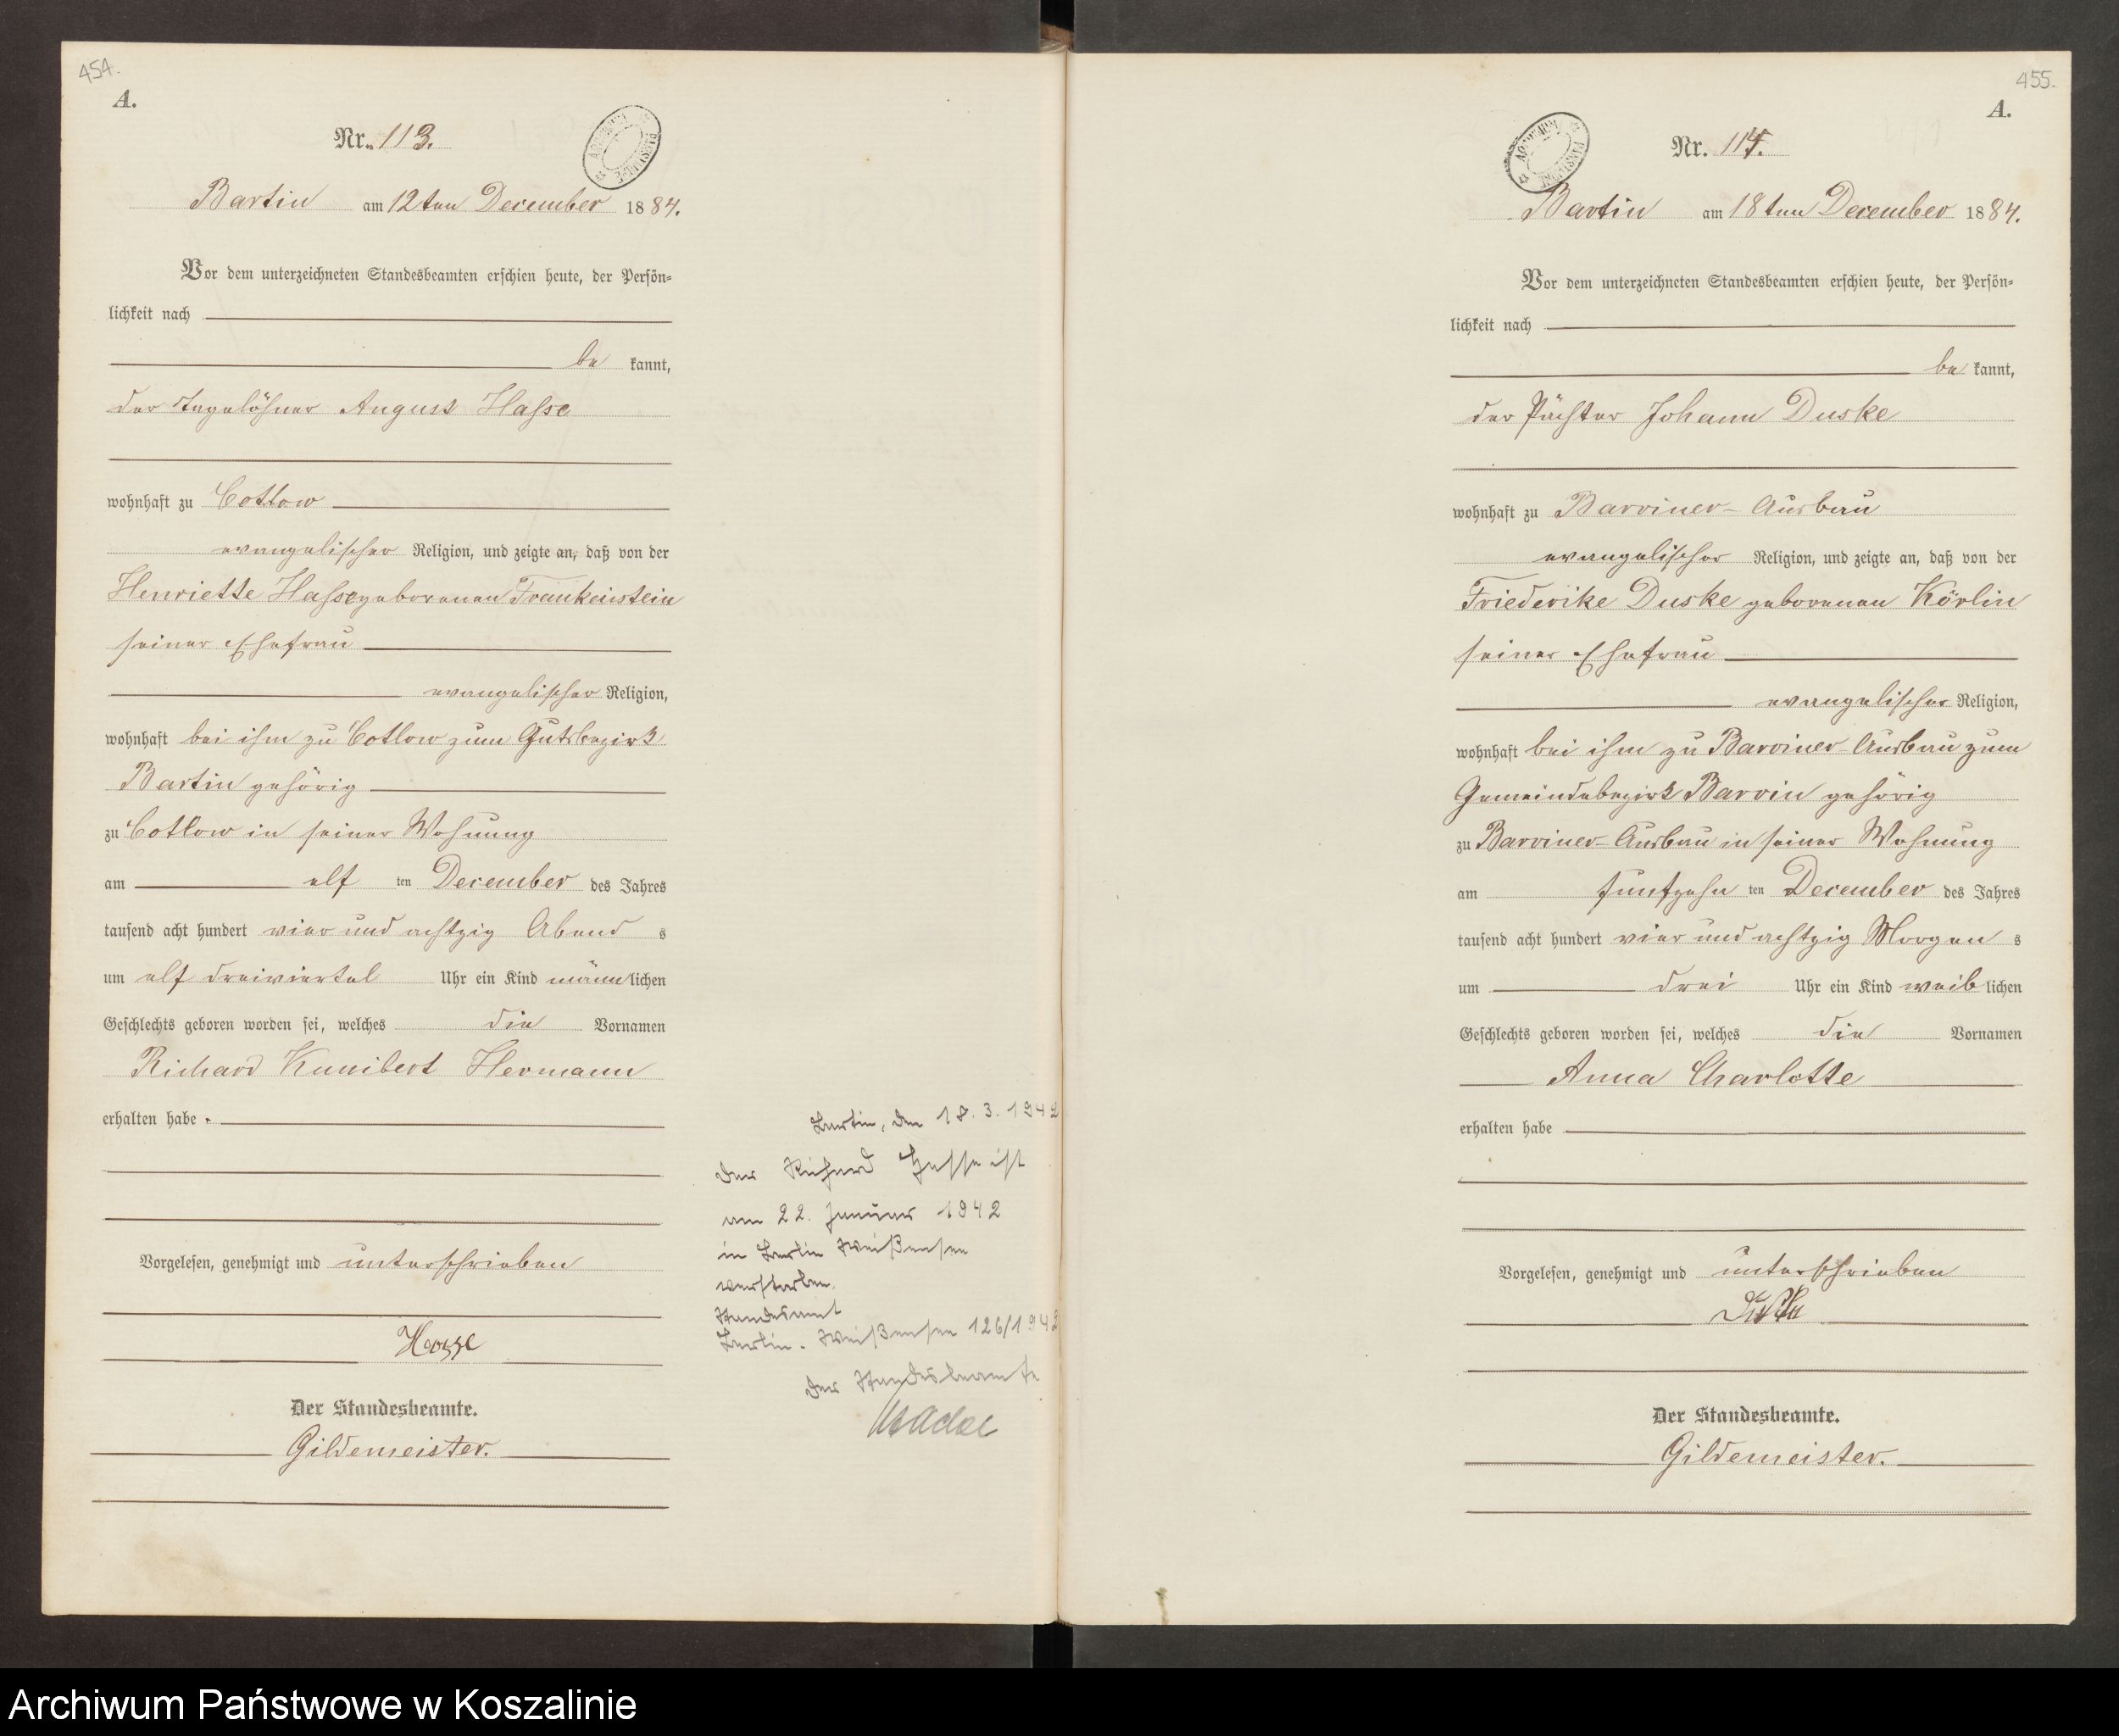 454.
A.
Nr. 113.
Bartin am 12ten December 1884.
Vor dem unterzeichneten Standesbeamten erschien heute, der Persön=
lichkeit nach
be kannt,
der Tagelöhner August Hasse
wohnhaft zu Cottow
evangelischer Religion, und zeigte an, daß von der
Henriette Hasse geborenen Frankenstein
seiner Ehefrau
evangelischer Religion,
wohnhaft bei ihm zu Cottow zum Gutsbezirk
Bartin gehörig
zu Cottow in seiner Wohnung
am elf ten December des Jahres
tausend acht hundert vier und achtzig Abend s
um elf dreiviertel Uhr ein Kind männlichen
Geschlechts geboren worden sei, welches die Vornamen
Richard Kunibert Hermann
erhalten habe.
Vorgelesen, genehmigt und unterschrieben
Hasse
Der Standesbeamte.
Gildemeister.
Bartin, den 18.3.1942
Der Richard Hasse ist
am 22. Januar 1942
in Berlin Weißensee
verstorben.
Standesamt
Berlin-Weißensee 126/1942
Der Standesbeamte
455.
A.
Nr. 114.
Bartin am 18ten December 1884.
Vor dem unterzeichneten Standesbeamten erschien heute, der Persön=
lichkeit nach
be kannt,
der Pächter Johann Duske
wohnhaft zu Barviner-Ausbau
evangelischer Religion, und zeigte an, daß von der
Friederike Duske geborenen Körlin
seiner Ehefrau
evangelischer Religion,
wohnhaft bei ihm zu Barviner-Ausbau zum
Gemeindebezirk Barvin gehörig
zu Barviner-Ausbau in seiner Wohnung
am funfzehn ten December des Jahres
tausend acht hundert vier und achtzig Morgen s
um drei Uhr ein Kind weiblichen
Geschlechts geboren worden sei, welches die Vornamen
Anna Charlotte
erhalten habe
Vorgelesen, genehmigt und unterschrieben
Duske
Der Standesbeamte.
Gildemeister.
Archiwum Państwowe w Koszalinie